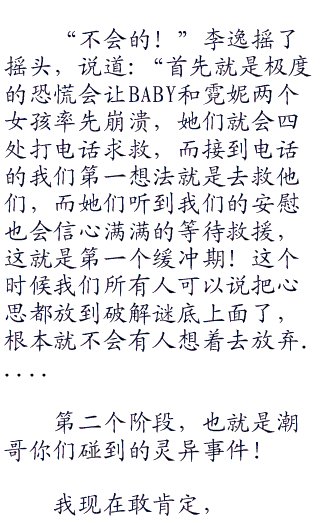 “不会的！”李逸摇了
摇头，说道：“首先就是极度
的恐慌会让BABY和霓妮两个
女孩率先崩溃，她们就会四
处打电话求救，而接到电话
的我们第一想法就是去救他
们，而她们听到我们的安慰
也会信心满满的等待救援，
这就是第一个缓冲期！这个
时候我们所有人可以说把心
思都放到破解谜底上面了，
根本就不会有人想着去放弃.
....
第二个阶段，也就是潮
哥你们碰到的灵异事件！
我现在敢肯定，